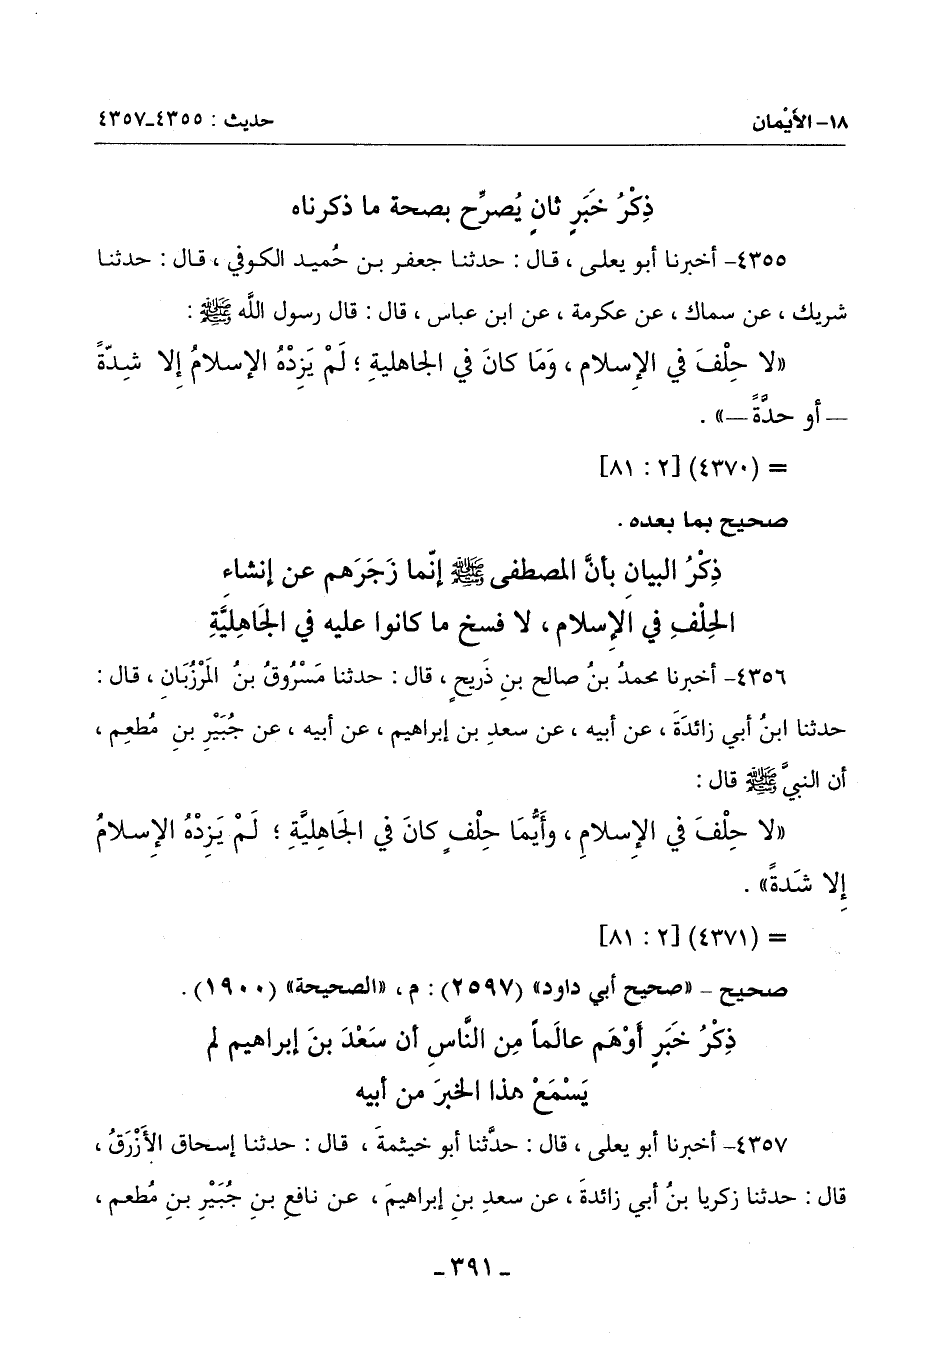 ١٨- الأَيْمان حديث : ٤٣٥٥-٤٣٥٧
ذِكْرُ خَبَرٍ ثانٍ يُصرِّح بصحة ما ذكرناه
٤٣٥٥- أخبرنا أبو يعلى ، قال : حدثنا جعفر بن حُميد الكوفي ، قال : حدثنا
شريك ، عن سماك ، عن عكرمة ، عن ابن عباس ، قال : قال رسول اللَّه ﷺ :
«لا حِلْفَ في الإِسلام ، وَمَا كانَ في الجاهليةِ ؛ لَمْ يَزِدْهُ الإسلامُ إِلا شِدّةً
— أو حدَّةً —» .
= (٤٣٧٠) [٢ : ٨١]
صحيح بما بعده .
ذِكْرُ البيانِ بأنَّ المصطفى ﷺ إنّما زَجَرَهم عن إنشاءِ
الحِلْفِ في الإِسلام ، لا فسخ ما كانوا عليه في الجَاهِليَّةِ
٤٣٥٦- أخبرنا محمدُ بنُ صالح بنِ ذَريحٍ ، قال : حدثنا مَسْرُوقُ بنُ المَرْزُبَانِ ، قال :
حدثنا ابنُ أبي زائدَةَ ، عن أبيه ، عن سعدِ بن إبراهيم ، عن أبيه ، عن جُبَيْرِ بنِ مُطعِم ،
أن النبيَّ ﷺ قال :
«لا حِلْفَ في الإِسلامِ ، وأَيُّمَا حِلْفٍ كانَ في الجَاهِليَّةِ ؛ لَمْ يَزِدْهُ الإِسلامُ
إِلا شَدةً» .
= (٤٣٧١) [٢ : ٨١]
صحيح - «صحيح أبي داود» (٢٥٩٧) : م ، «الصحيحة» (١٩٠٠) .
ذِكْرُ خَبَرٍ أَوْهَم عالَماً مِن النَّاسِ أن سَعْدَ بنَ إبراهيم لم
يَسْمَعْ هذا الخبرَ من أبيه
٤٣٥٧- أخبرنا أبو يعلى ، قال : حدَّثنا أبو خيثمةَ ، قال : حدثنا إسحاق الأَزْرَقُ ،
قال : حدثنا زكريا بنُ أبي زائدةَ ، عن سعدِ بنِ إبراهيمَ ، عن نافعِ بنِ جُبَيْرِ بنِ مُطعم ،
- ٣٩١ -